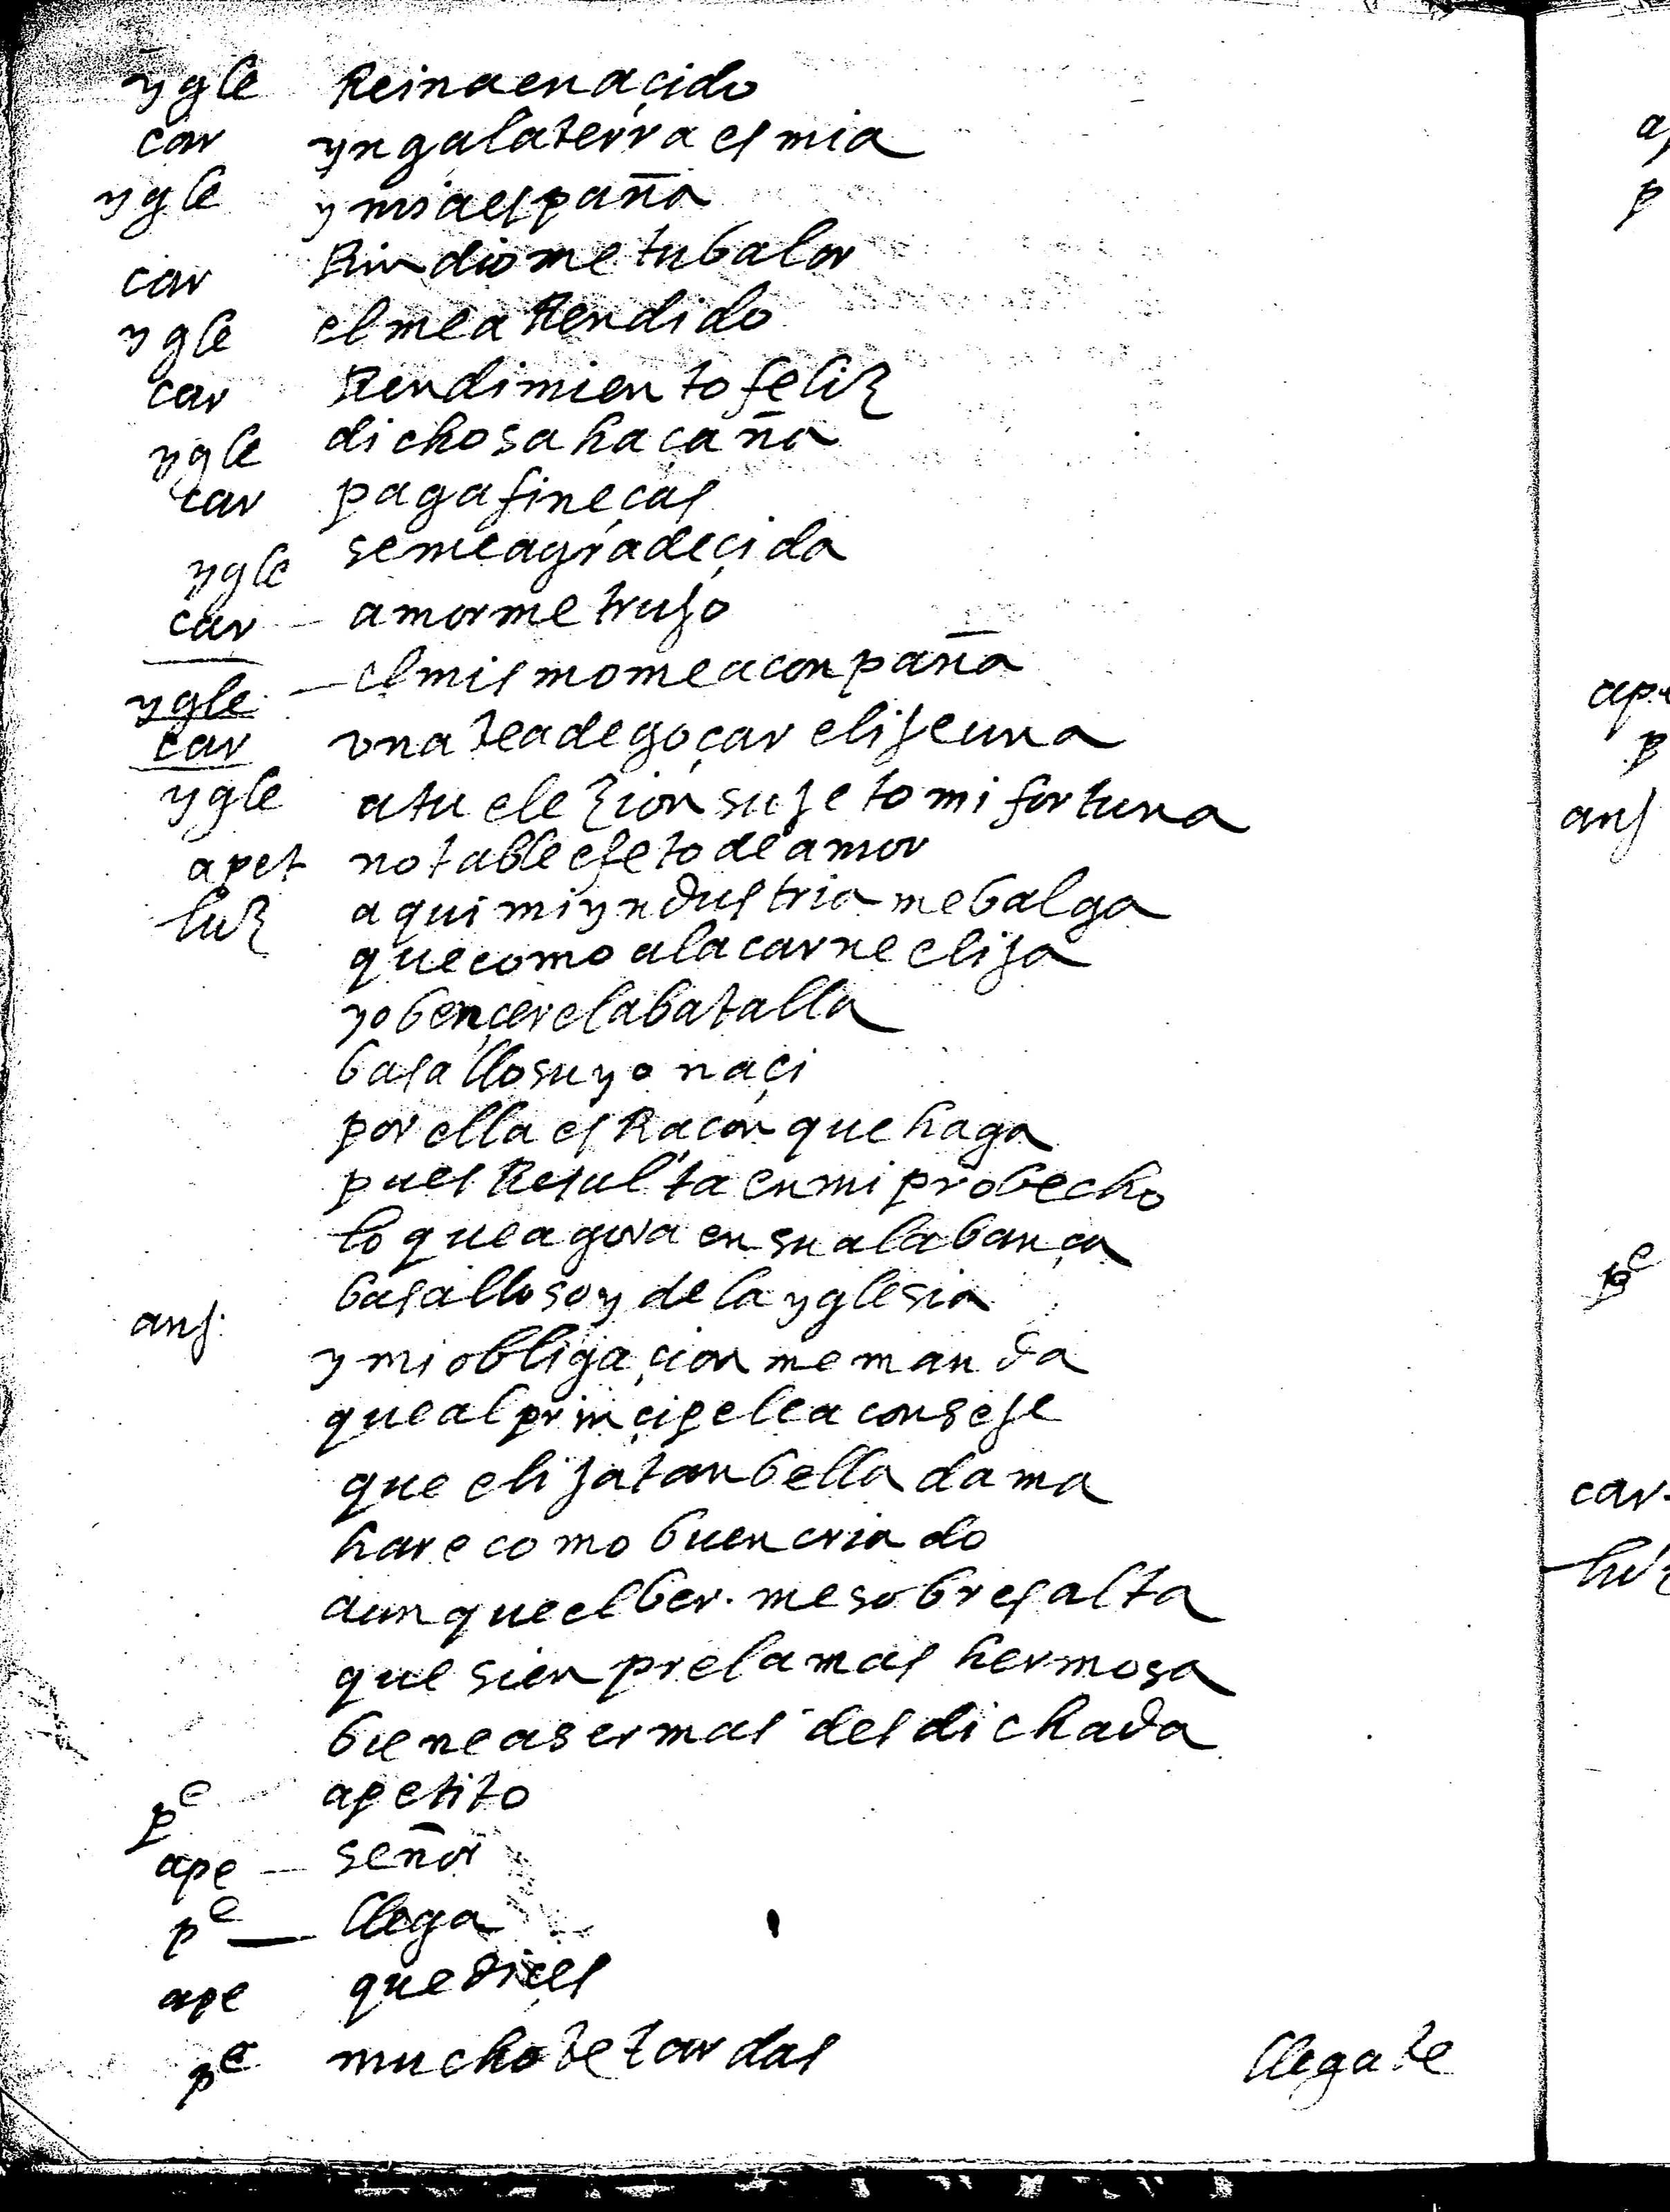 ygle Reina e naçido
car yngalaterra es mia
ygle y mia españa
car Rindiome tu balor
ygle el me a Rendido
car Rendimiento feliz
ygle dichosa haçaña
car paga fineças
ygle seme agradeçida
car — amor me trujo
ygle — el mismo me aconpaña
car una tea de goçar elije una
ygle a tu elezion sujeto mi fortuna
apet notable efeto de amor
luz aqui mi yndustria me balga
que como a la carne elija
yo bençere la batalla
basallo suyo naçi
por ella es Racon que haga
pues Resulta en mi probecho
lo que agora en su alabança
anj. basallo soy de la yglesia
y mi obligaçion me manda
que al prinçipe le aconseje
que elija tan bella dama
hare como buen criado
aunque el ber. me sobresalta
que sienpre la mas hermosa
biene a ser mas desdichada
pe apetito
ape — señor
pe — llega
ape que diçes
pe mucho te tardas
llegate
ap
p
ape
p
anj
pe
car.
luz